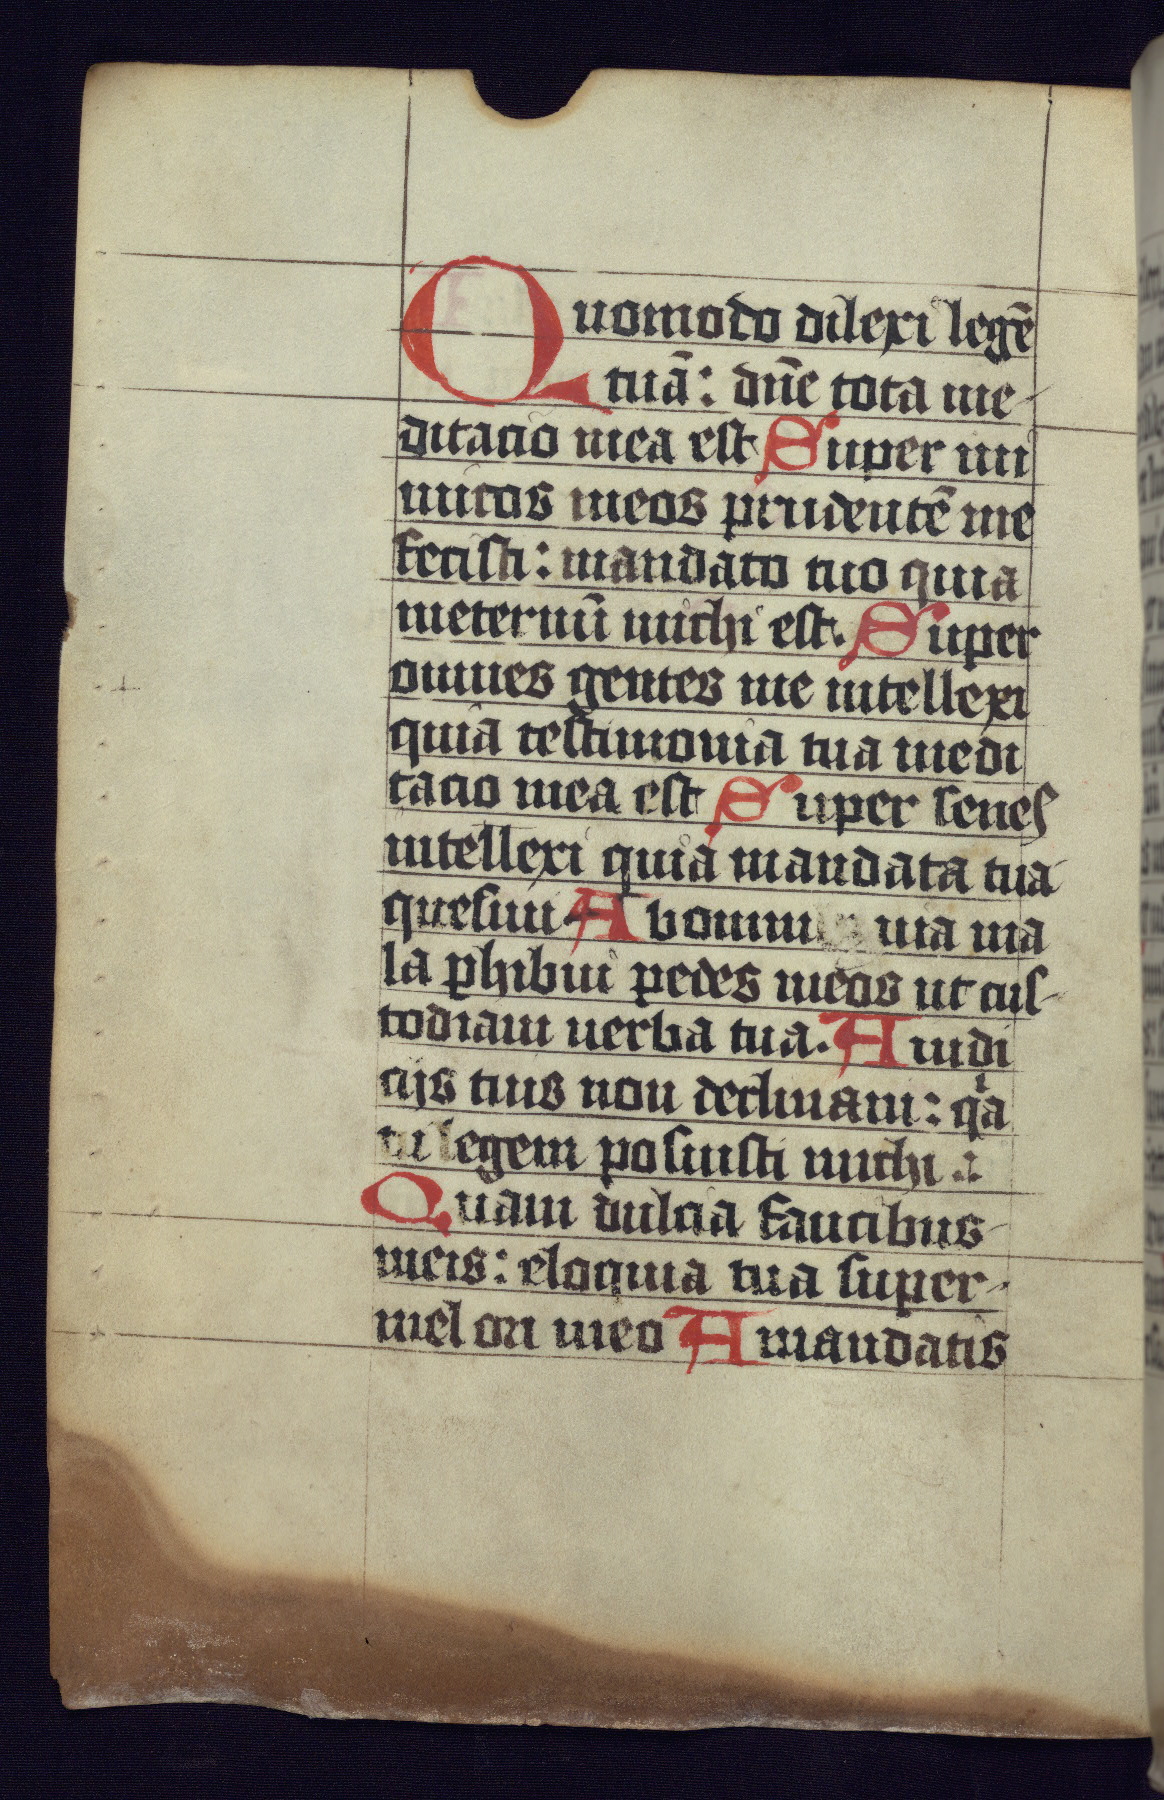 Quomodo dilexi legē
tuā: dn̄e tota me-
ditacio mea est Super ini
micos meos prudentē me
fecisti: mandato tuo quia
ineternū michi est. Super
omnes gentes me intellexi
quia testimonia tua medi
tacio mea est Super senes
intellexi quia mandata tua
quesiui Ab omni uia ma
la phibui pedes meos ut cus-
todiam uerba tua. A iudi
cijs tuis non declinaui: qͥa
tu legem posuisti michi :
Quam dulcia faucibus
meis: eloquia tua super-
mel ori meo A mandatis